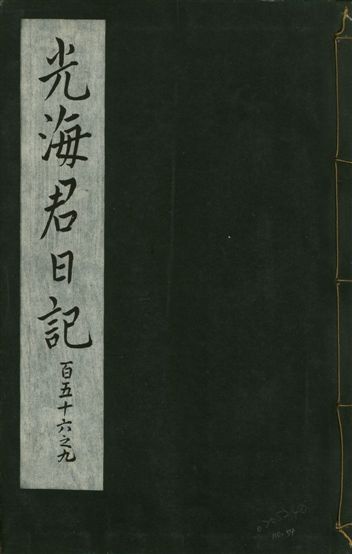 光海君日記
百五十六之九